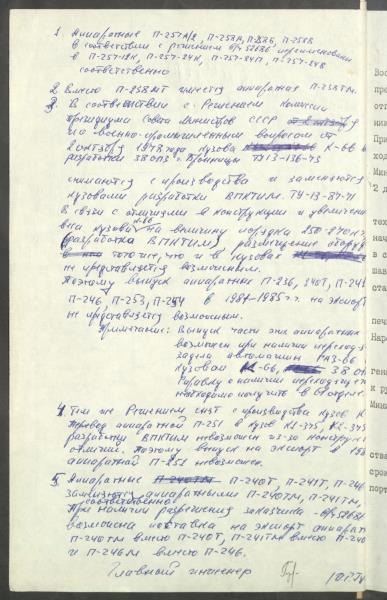 1 Аппаратные П-257А/Я, П-258А, П-258Б, П-258В
в соответствии с решением в/ч 52686 переименованы
в П-257-12К, П-257-24К, П-257-24П, П-257-24В
соответственно
2. Вместо П-258АТ числится аппаратная П-258ТМ.
3. В соответствии с Решением Комиссии
Президиума Совета Министров СССР
по военно-промышленным вопросам от
2 октября 1978 года кузова К-66
разработки з-да ОПЗ г. Бронницы ТУ13-136-73
снимаются с производства и заменяются
кузовами разработки ВПКТИМ. ТУ-13-87-71
В связи с отличиями в конструкции и увеличении
веса кузова К-66 на величину порядка 250-270 кг
(разработка ВПКТИМ), размещение оборуд
того же, что и в кузовах
не представляется возможным.
Поэтому выпуск аппаратных П-236, 240Т, П-241
П-246, П-253, П-254 в 1984-1985 г.г. на экспорт
не представляется возможным.
Примечание: Выпуск части этих аппаратных
возможен при наличии переход
задела автомашин ГАЗ-66
кузовам К-66,
Справку о наличии переходящ
необходимо получить в Отделе
4. Тем же Решением снят с производства кузов К
Перевод аппаратной П-251 в кузов К2-375, К2-375
разработки ВПКТИМ невозможен из-за конструк
отличие. Поэтому выпуск на экспорт в 198
аппаратной П-251 невозможен.
5. Аппаратные П-240Т, П-241Т, П-246
заменяются аппаратными П-240ТМ, П-241ТМ,
соответственно
При наличии разрешения заказчика - в/ч 52686
возможна поставка на экспорт аппарат
П-240ТМ вместо П-240Т, П-241ТМ вместо П-240
и П-246М вместо П-246.
Главный инженер